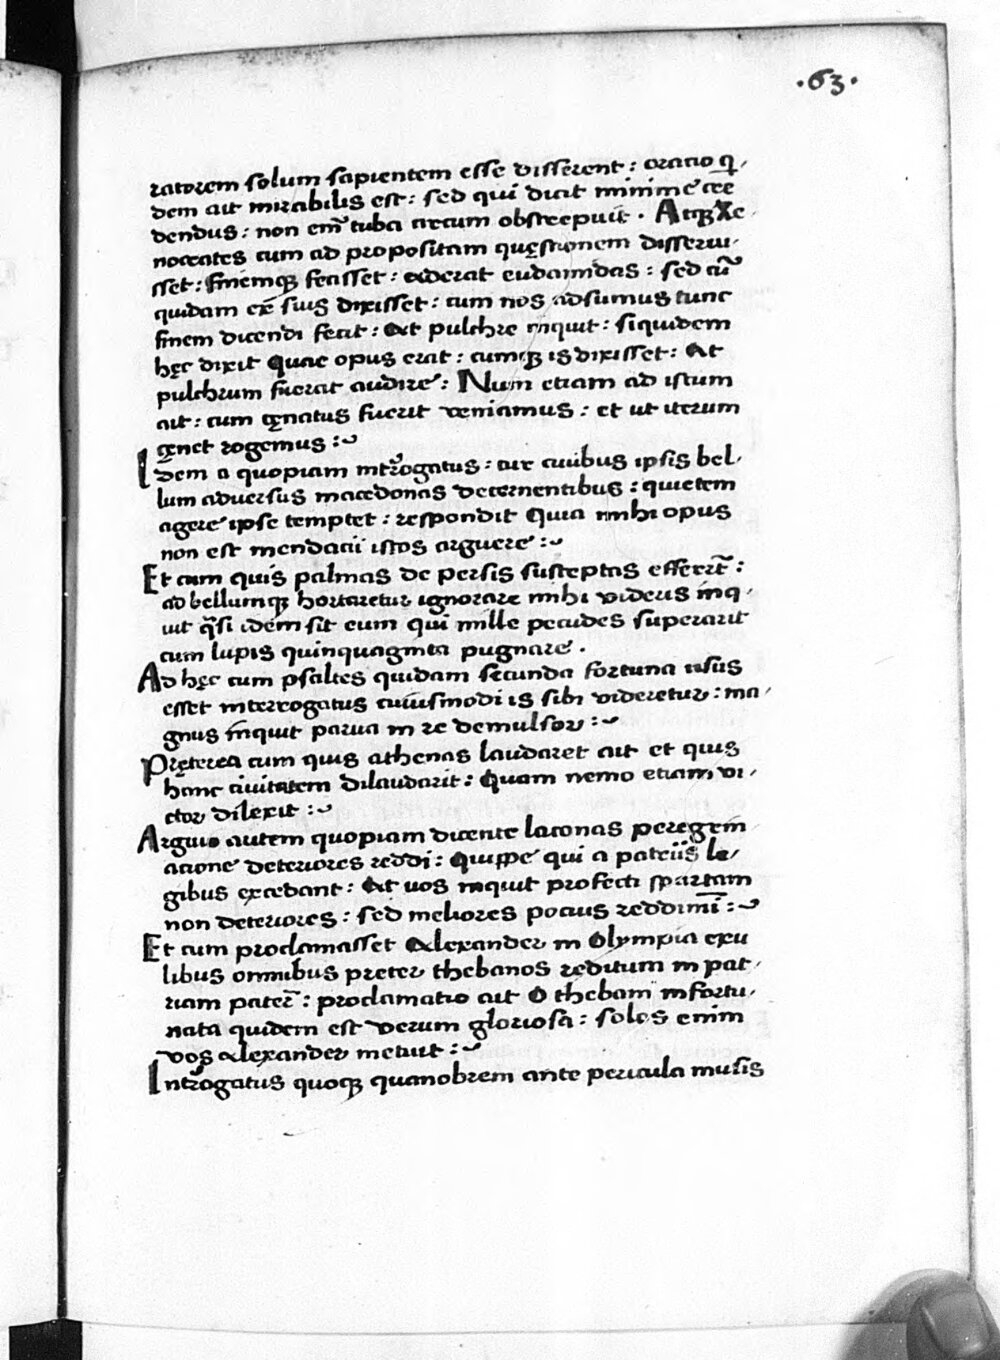 .63.
ratorem solum sapientem esse disserent : oratio q̄,
dem ait mirabilis est : sed qui dicit minime cre
dendus : non em̄ tuba circum obstrepuit . Atqꝫ Xe
nocrates cum ad propositam quęstionem disserui,
sset : finemqꝫ fecisset : accederat eudamidas : sed cū
quidam ex suis dixisset : cum nos adsumus tunc
finem dicendi fecit : At pulchre inquit : siquidem
hęc dixit quae opus erat : cumqꝫ is dixisset : At
pulchrum fuerat audire : Num etiam ad istum
ait : cum cęnatus fuerit veniamus : et ut iterum
cęnet rogemus :~
Idem a quopiam int̄rogatus : cur civibus ipsis bel,
lum adversus macedonas decernentibus : quietem
agere ipse temptet : respondit Quia mihi opus
non est mendacii istos arguere :~
Et cum quis palmas de persis susceptas efferr̄t :
ad bellumqꝫ hortaretur ignorare mihi videris inq,
uit q̄si idem sit eum qui mille pecudes superarit
cum lupis quinquaginta pugnare .
Ad hęc cum psaltes quidam secunda fortuna usus
esset interrogatus cuiusmodi is sibi videretur : ma,
gnus inquit parua in re demulsor :~
Pręterea cum quis athenas laudaret ait et quis
hanc civitatem dilaudarit : Quam nemo etiam vi,
ctor dilexit :~
Arguio autem quopiam dicente laconas peregrin
atione deteriores reddi : Quippe qui a patriis le,
gibus excedant : At vos inquit profecti spartam
non deteriores : sed meliores pocius reddimī :~
Et cum proclamasset Alexander in Olympia exu
libus omnibus preter thebanos reditum in pat,
riam pater̄ : proclamatio ait O thebani infortu,
nata quidem est verum gloriosa : solos enim
vos Alexander metuit :~
Int̄rogatus quoqꝫ quanobrem ante pericula musis